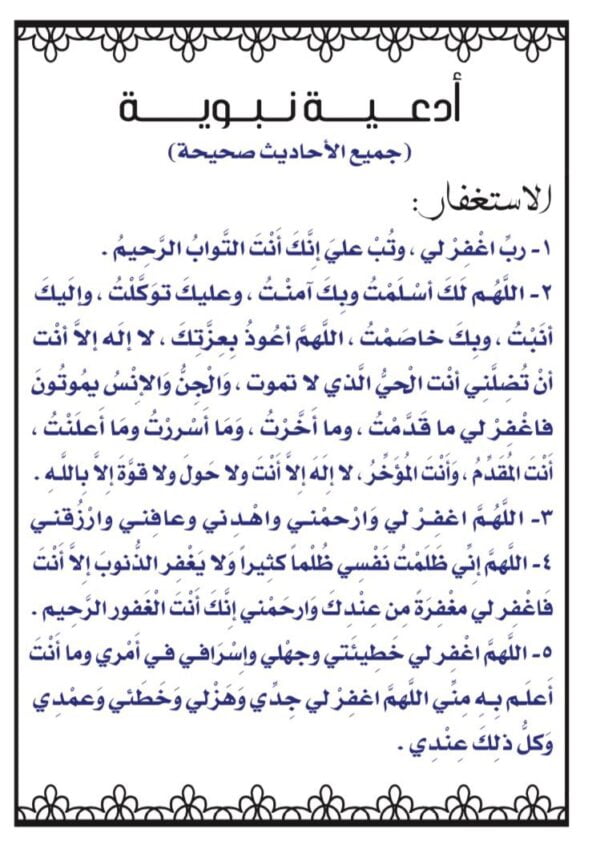 أدعـيـة نـبـويـة
(جميع الأحاديث صحيحة)
الاستغفار:
١- ربِّ اغْفِرْ لي ، وتُبْ عليَ إنَّكَ أَنْتَ التَّوابُ الرَّحيمُ .
٢- اللَّهُم لَكَ أسْلَمْتُ وبِكَ آمنْتُ ، وعليكَ توَكَّلْتُ ، وإلَيكَ
أنَبْتُ ، وبِكَ خاصَمْتُ ، اللَّهمَّ أعُوذُ بِعزَّتِكَ ، لا إلَه إلاَّ أنْت
أنْ تُضِلَّني أنْت الْحيُّ الَّذي لا تموت ، وَالْجِنُّ وَالإنْسُ يمُوتُونَ
فاغْفِرْ لي ما قَدَّمْتُ ، وما أَخَّرْتُ ، وَمَا أَسْررْتُ ومَا أَعلَنْتُ ،
أَنْتَ المُقَدِّمُ ، وَأَنْتَ المُؤَخِّرُ ، لا إلَهَ إلاَّ أَنْتَ ولا حَولَ ولا قوَّةَ إلاَّ بِاللَّهِ .
٣- اللَّهُمَّ اغفِرْ لي وَارْحمْني واهْدِني وعافِني وارْزُقني
٤- اللَّهمَّ إنِّي ظلَمْتُ نَفْسِي ظُلْماً كثِيراً وَلا يَغْفِر الذُّنوبَ إلاَّ أَنْتَ
فَاغْفِر لي مغْفِرَةً مِن عِنْدِكَ وَارحَمْني إنَّكَ أَنْتَ الْغَفور الرَّحِيم .
٥- اللَّهمَّ اغْفر لي خَطِيئَتي وجهْلي وإسْرَافي في أمْري وما أَنْتَ
أَعلَم بِه مِنِّي اللَّهمَّ اغفِرْ لي جِدِّي وَهَزْلي وَخَطَئي وَعمْدِي
وَكلُّ ذلِكَ عِنْدِي .